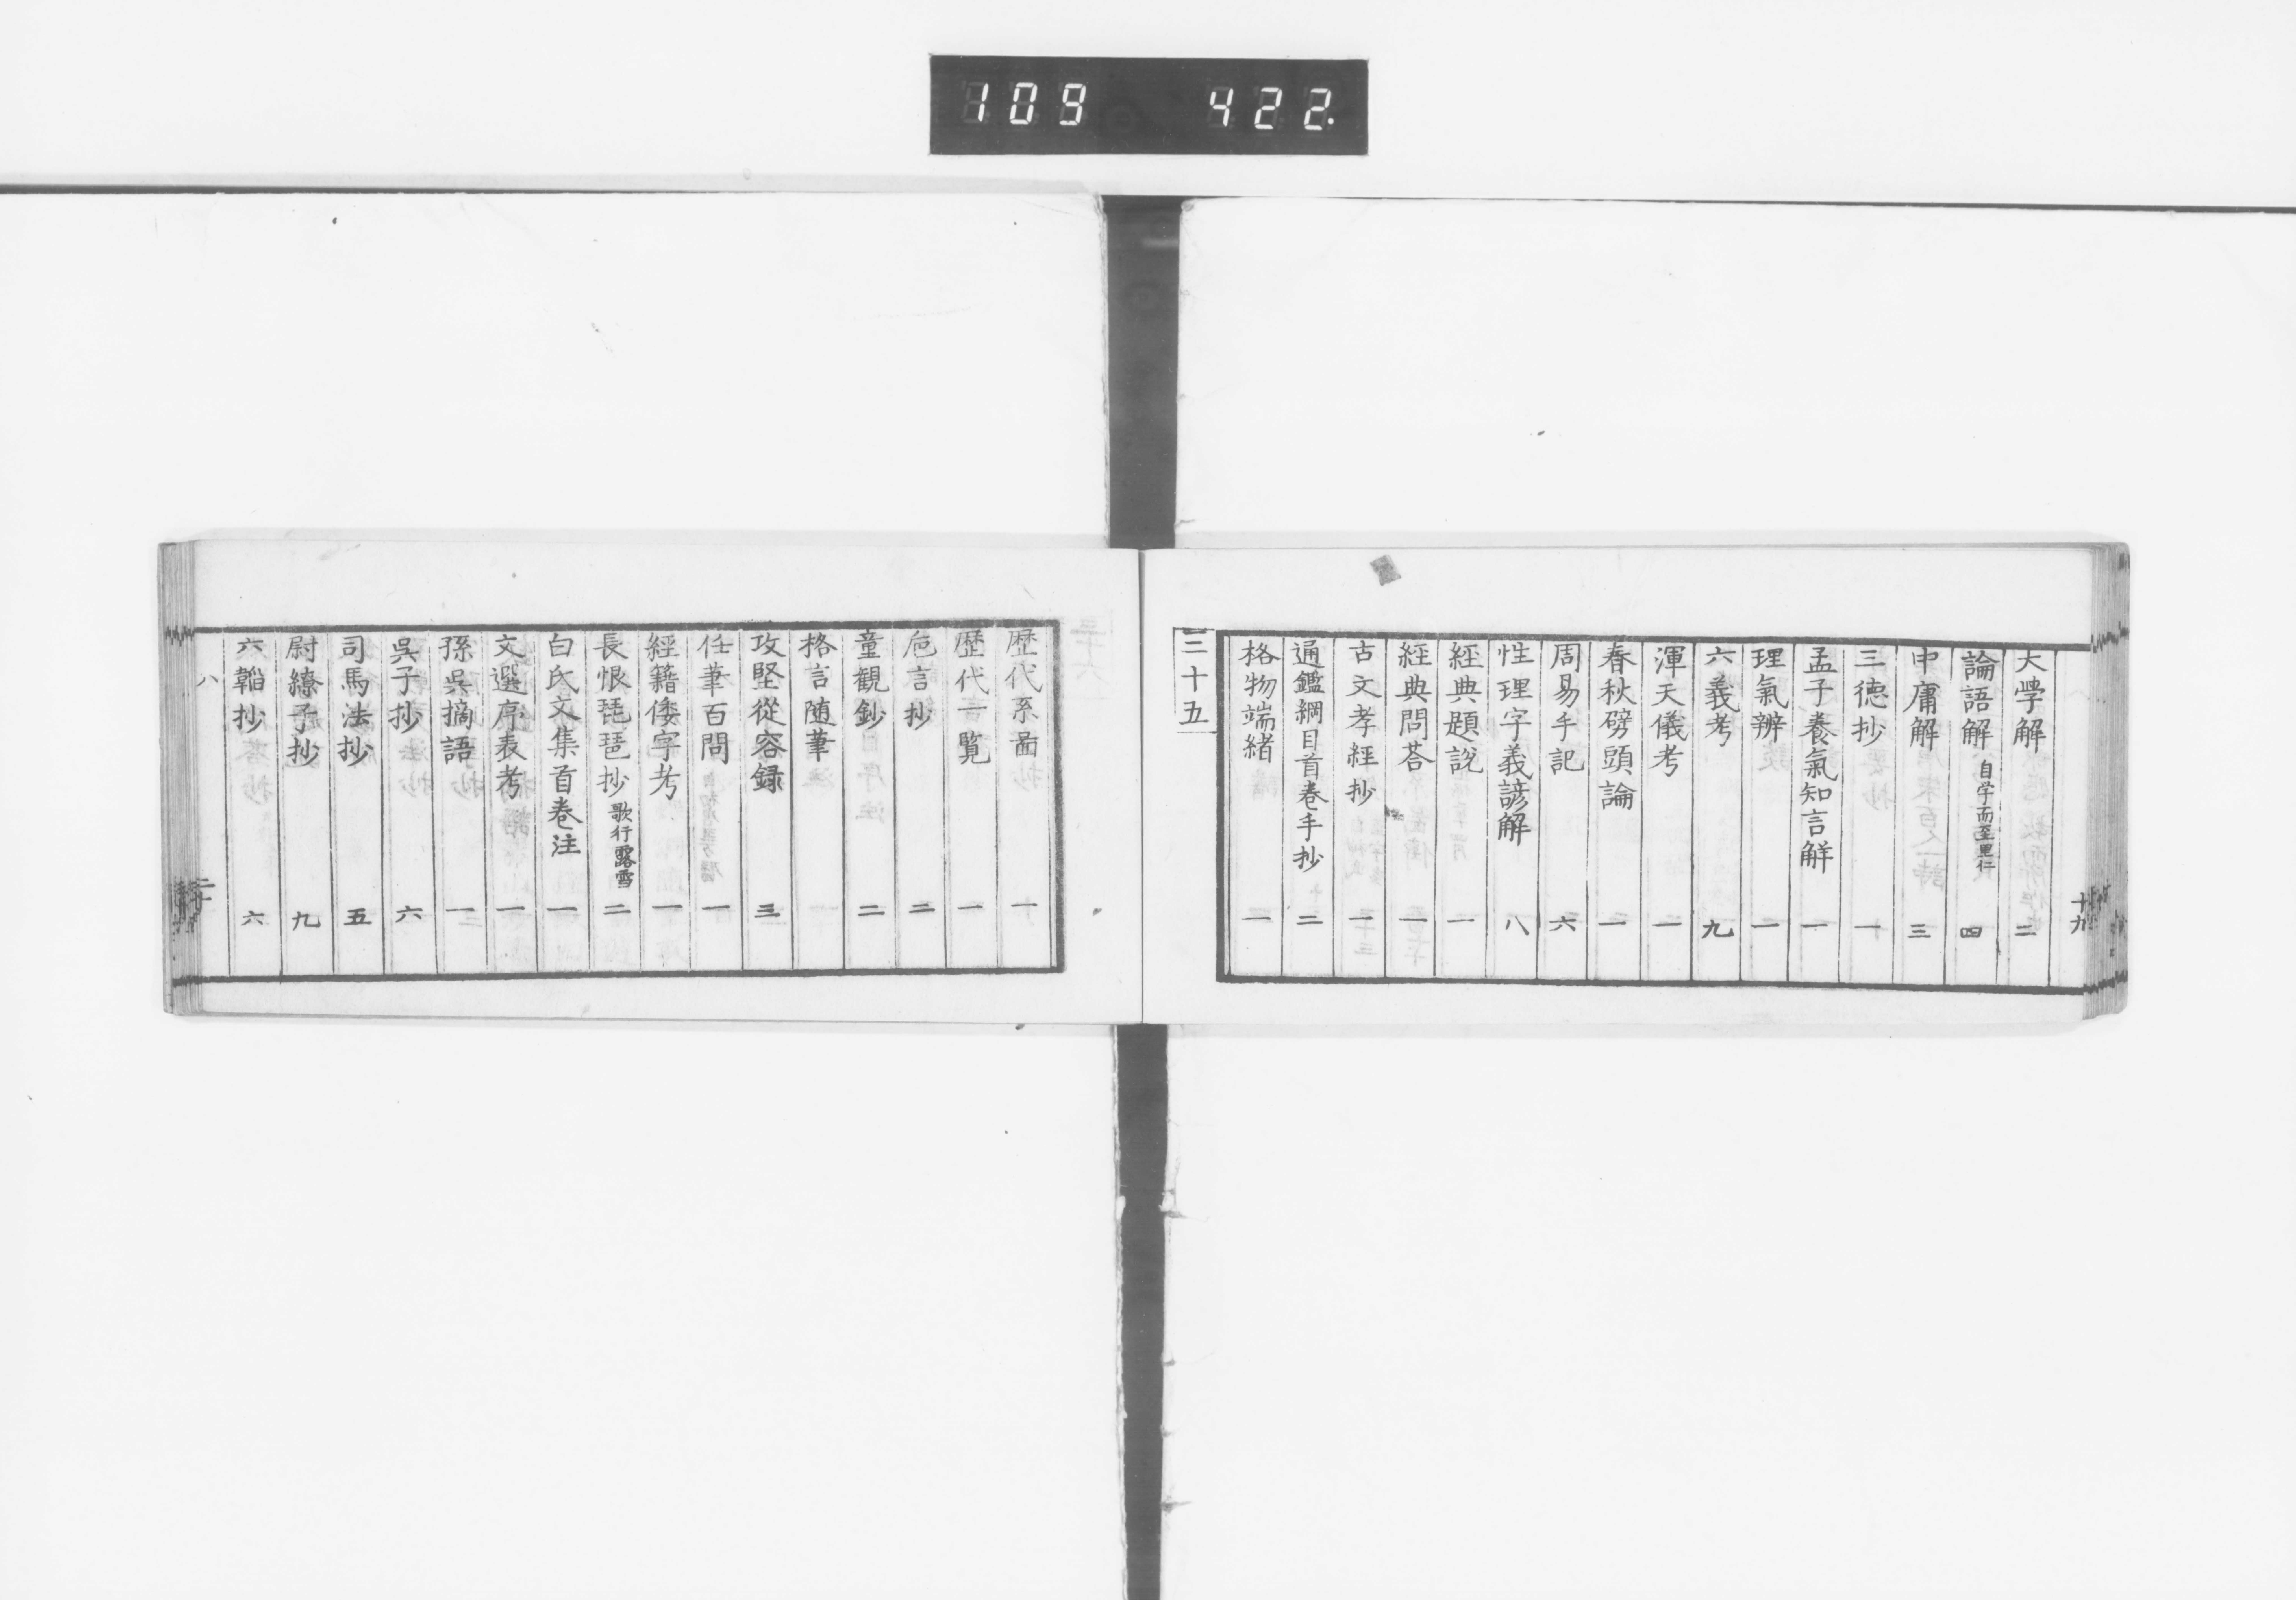 109 422.
大學解 二
論語解 自学而至里仁 四
中庸解 三
三徳抄 一
孟子養氣知言解 一
理氣辨 一
六義考 九
渾天儀考 一
春秋劈頭論 一
周易手記 六
性理字義諺解 八
經典題說 一
經典問荅 一
古文孝經抄 一
通鑑綱目首卷手抄 二
格物端緒 一
三十五
歷代系啚 一
歷代一覧 一
巵言抄 二
童觀鈔 二
格言随筆
攻堅從容録 三
任筆百問 一
經籍倭字考 一
長恨琵琶抄 歌行露雪 二
白氏文集首卷注 一
文選序表考 一
孫吳摘語 一
吳子抄 六
司馬法抄 五
尉繚子抄 九
六韜抄 六
八